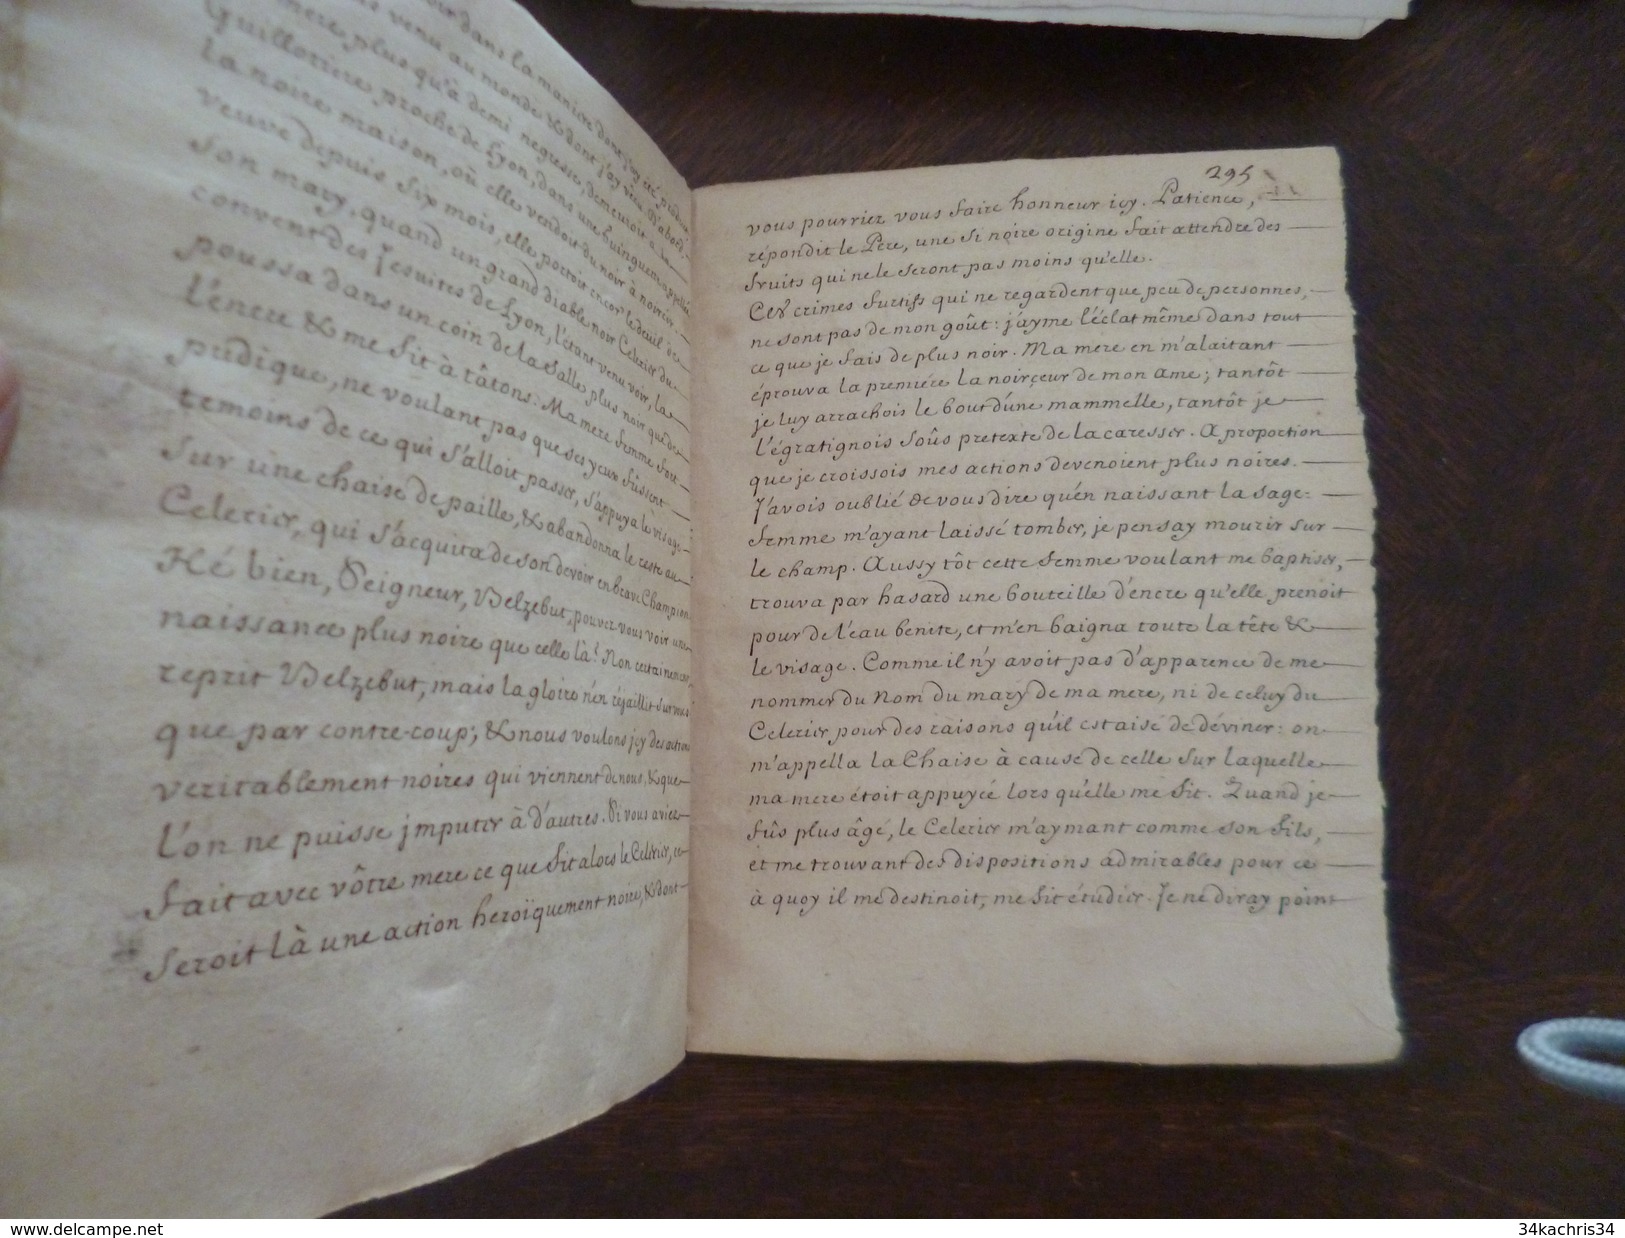 dans la maniere dont j'ay été produit
venu au monde & dont j'ay vécu. D'abord,
mere plus qu'à demi negresse, demeuroit à la
Guillotiere proche de Lyon, dans une Guinguette appellée
la noire maison, où elle vendoit du noir à noircir.
veuve depuis six mois, elle portoit encor le deuil de
son mary, quand un grand diable noir Celerier du
convent des Jesuites de Lyon, l'étant venu voir, la
poussa dans un coin de la salle plus noir que de
l'encre & me fit à tâtons: Ma mere femme fort
pudique, ne voulant pas que ses yeux fûssent
temoins de ce qui s'alloit passer, s'appuya le visage
sur une chaise de paille, & abandonna le reste au
Celerier, qui s'acquita de son devoir en brave Champion
Hé bien, Seigneur, Belzebut, pouvez vous voir une
naissance plus noire que celle là? Non certainement,
reprit Belzebut, mais la gloire n'en réjaillit sur vous
que par contre-coup; & nous voulons jcy des actions
veritablement noires qui viennent de nous, & que
l'on ne puisse jmputer à d'autres. Si vous aviez
fait avec vôtre mere ce que fit alors le Celerier, ce
seroit là une action heroïquement noire, & dont
295
vous pourriez vous faire honneur icy. Patience,
répondit le Pere, une si noire origine fait attendre des
fruits qui ne le seront pas moins qu'elle.
Ces crimes furtifs qui ne regardent que peu de personnes,
ne sont pas de mon goût: j'ayme l'éclat même dans tout
ce que je fais de plus noir. Ma mere en m'alaitant
éprouva la premiére la noirçeur de mon ame; tantôt
je luy arrachois le bout d'une mammelle, tantôt je
l'égratignois soûs pretexte de la caresser. A proportion
que je croissois mes actions devenoient plus noires.
J'avois oublié de vous dire qu'en naissant la sage-
femme m'ayant laissé tomber, je pensay mourir sur
le champ. Aussy tôt cette femme voulant me baptiser,
trouva par hasard une bouteille d'encre qu'elle prenoit
pour de l'eau benite, et m'en baigna toute la tête &
le visage. Comme il n'y avoit pas d'apparence de me
nommer du nom du mary de ma mere, ni de celuy du
Celerier pour des raisons qu'il est aisé de déviner: on
m'appella la Chaise à cause de celle sur laquelle
ma mere étoit appuyée lors qu'elle me fit. Quand je
fûs plus âgé, le Celerier m'aymant comme son fils,
et me trouvant des dispositions admirables pour ce
à quoy il me destinoit, me fit étudier. Je ne diray point
www.delcampe.net
34kachris34